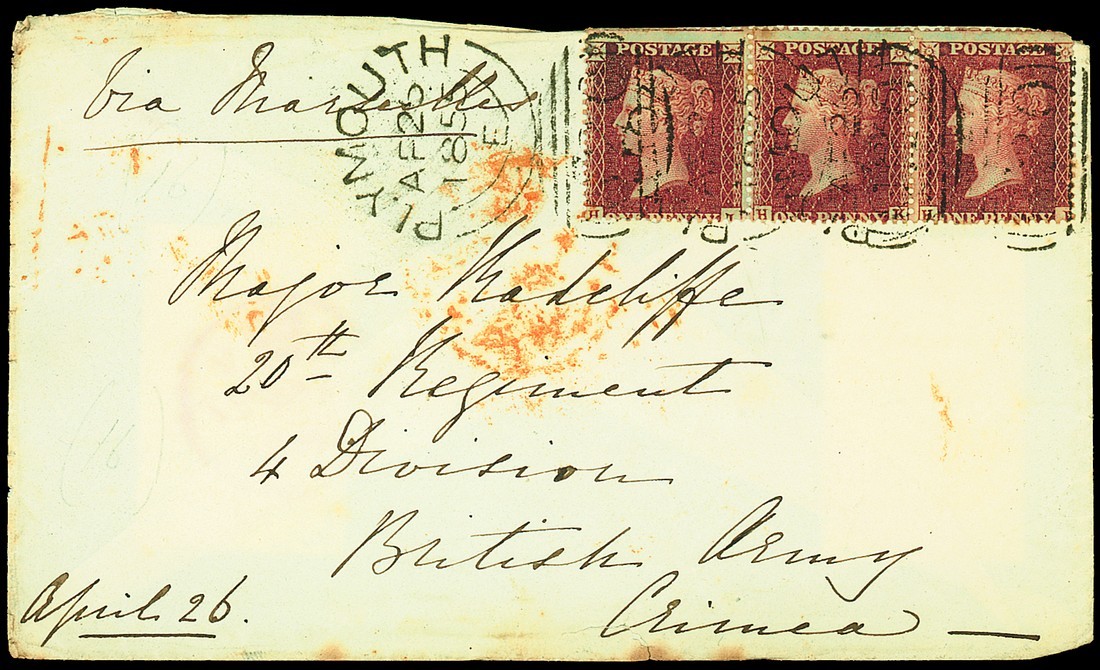 Via Marseilles
PLYMOUTH
AP 26
1855
E
POSTAGE POSTAGE POSTAGE
H ONE PENNY J H ONE PENNY K H ONE PENNY
Major Radcliffe
20th Regiment
4 Division
British Army
Crimea
April 26.